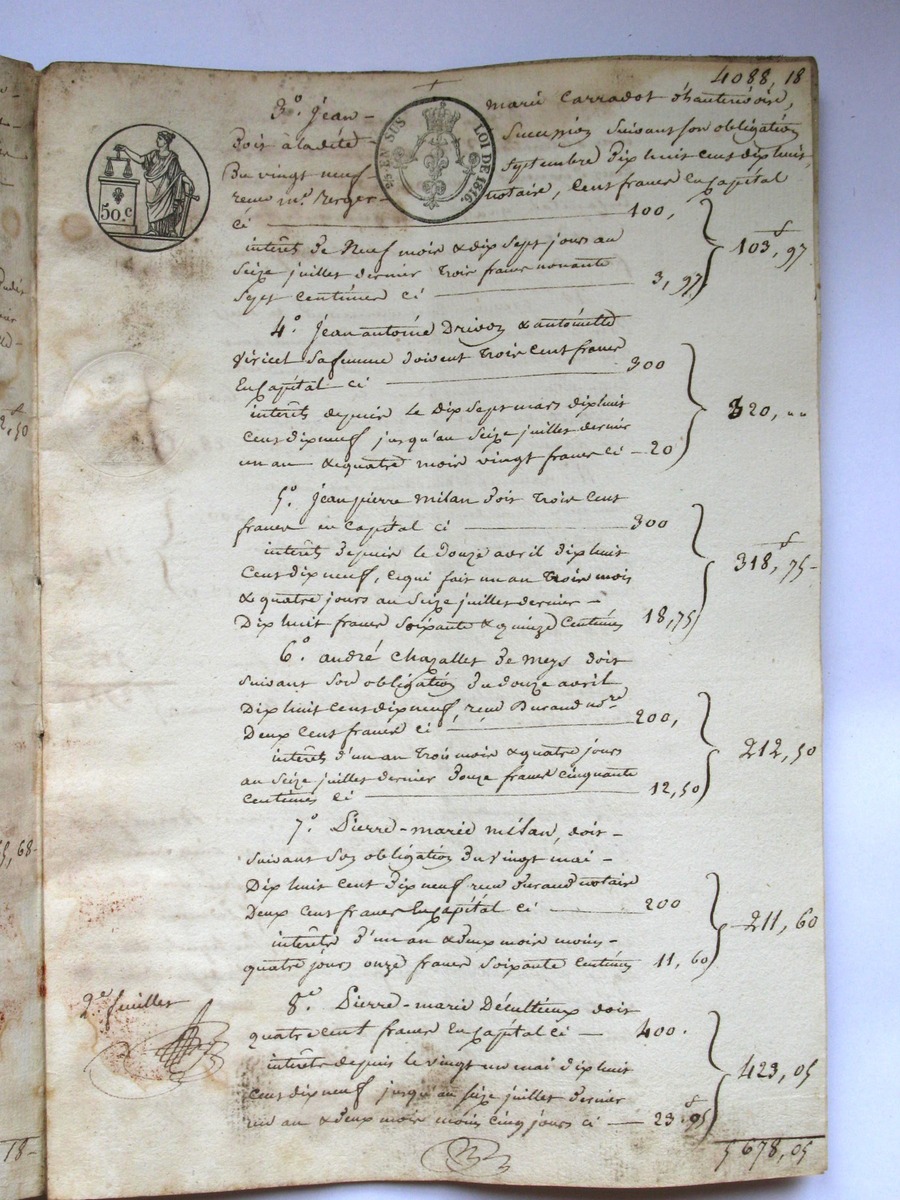 4088, 18
3° Jean- marie Carradot d'hauterivoire,
Doit à ladite succession suivant son obligation
Du vingt neuf septembre dix huit cent dix huit
reçue me. Verger notaire, Cent francs En Capital
ci 100,
interêts de Neuf mois & dix sept jours au
Seize juillet dernier trois francs nonante
Sept Centimes ci 3, 97 103, 97
4° Jean antoine Drivon & antoinette
Viricel Safemme doivent trois Cent francs
En Capital ci 300
interêts depuis Le dix Sept mars dix huit
Cent dix neuf jusqu'au Seize juillet dernier
un an & quatre mois vingt francs ci - 20 320, "
5° Jean pierre milan doit trois Cent
francs en Capital ci 300
interêts depuis le Douze avril dix huit
Cent dix neuf, ce qui fait un an trois mois
& quatre jours au Seize juillet dernier -
Dix huit francs Soixante & quinze Centimes 18, 75 318, 75
6° andré Chazallet de meys doit
Suivant Son obligation du douze avril
Dix huit Cent dix neuf, reçue Durand nore
Deux Cent francs ci 200,
interêts d'un an trois mois & quatre jours
au Seize juillet dernier douze francs cinquante
Centimes ci 12, 50 212, 50
7° Pierre-marie milan, doit -
Suivant Son obligation du vingt mai -
Dix huit Cent dix neuf reçue durand notaire
Deux Cent francs En Capital ci 200
interêts d'un an & deux mois moins -
quatre jours onze francs Soixante Centimes 11, 60 211, 60
8e Pierre-marie Décultieux doit
quatre Cent francs En Capital ci - 400.
interêts depuis le vingt un mai dix huit
Cent dix neuf jusqu'au Seize juillet dernier
un an & deux mois moins cinq jours ci - 23 05 423, 05
5678, 05
2e feuillet
50.c
EN SUS
LOI DE 1816.
2,50
68
18-